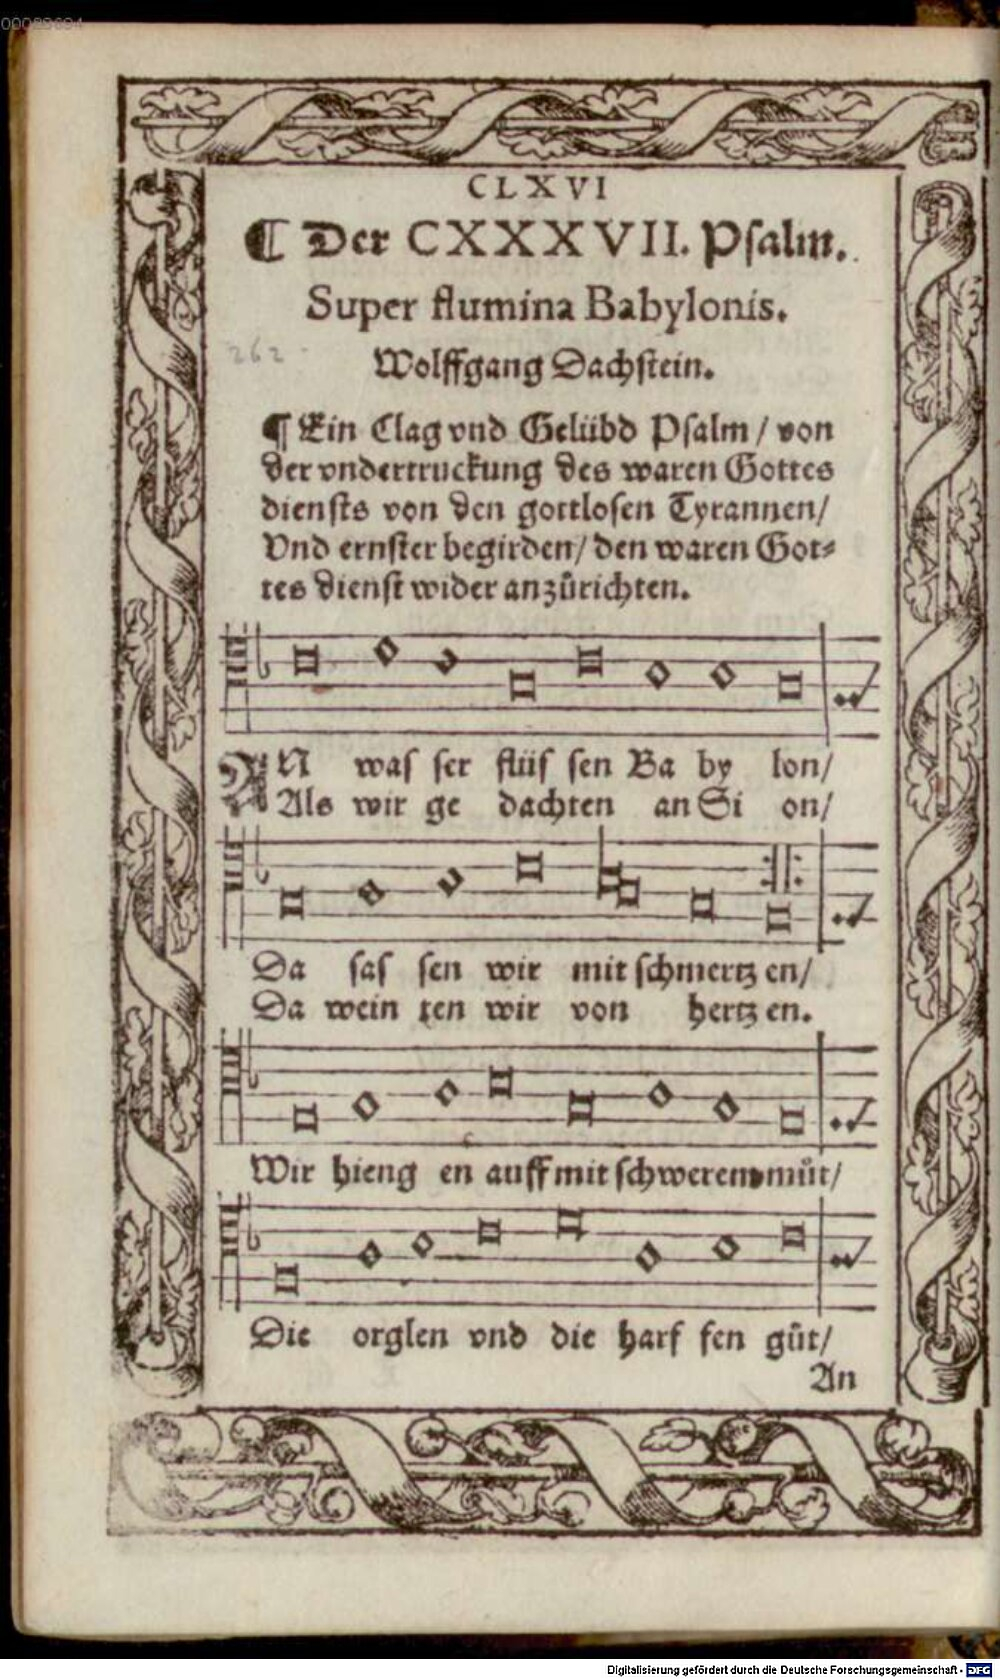 00023694
CLXVI
¶ Der CXXXVII. Psalm.
Super flumina Babylonis.
262
Wolffgang Dachstein.
¶ Ein Clag vnd Gelübd Psalm / von
der vndertruckung des waren Gottes
diensts von den gottlosen Tyrannen /
Vnd ernster begirden / den waren Got⸗
tes dienst wider anzůrichten.
AN was ser flüs sen Ba by lon /
Als wir ge dachten an Si on /
Da sas sen wir mit schmertz en /
Da wein ten wir von hertz en.
Wir hieng en auff mit schwerem můt /
Die orglen vnd die harf fen gůt /
An
Digitalisierung gefördert durch die Deutsche Forschungsgemeinschaft - DFG